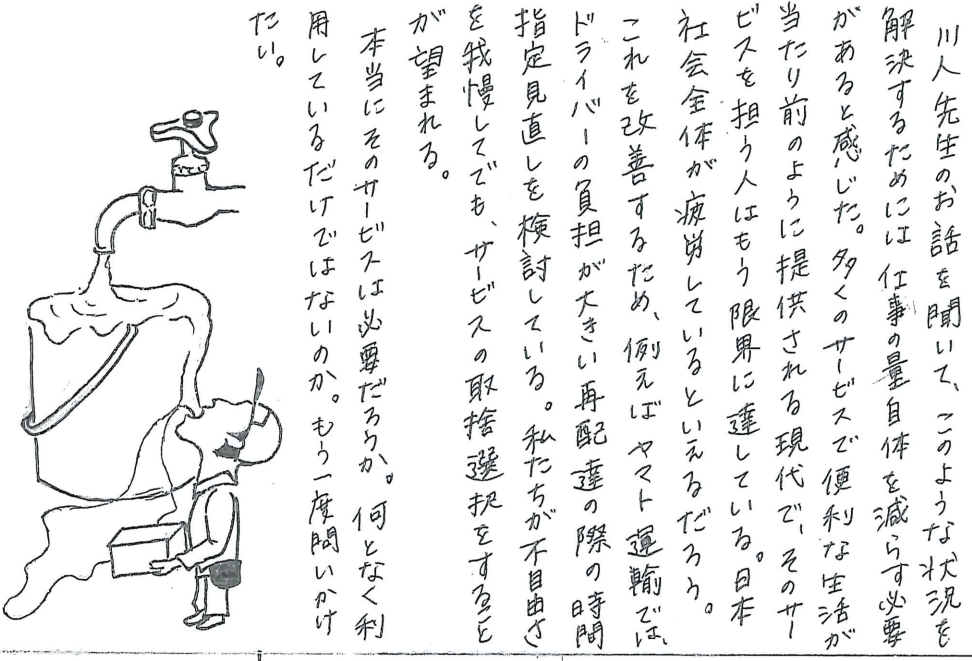 川人先生のお話を聞いて、このような状況を
解決するためには仕事の量自体を減らす必要
があると感じた。多くのサービスで便利な生活が
当たり前のように提供される現代で、そのサー
ビスを担う人はもう限界に達している。日本
社会全体が疲労しているといえるだろう。
これを改善するため、例えばヤマト運輸では、
ドライバーの負担が大きい再配達の際の時間
指定見直しを検討している。私たちが不自由さ
を我慢してでも、サービスの取捨選択をすること
が望まれる。
本当にそのサービスは必要だろうか。何となく利
用しているだけではないのか。もう一度問いかけ
たい。